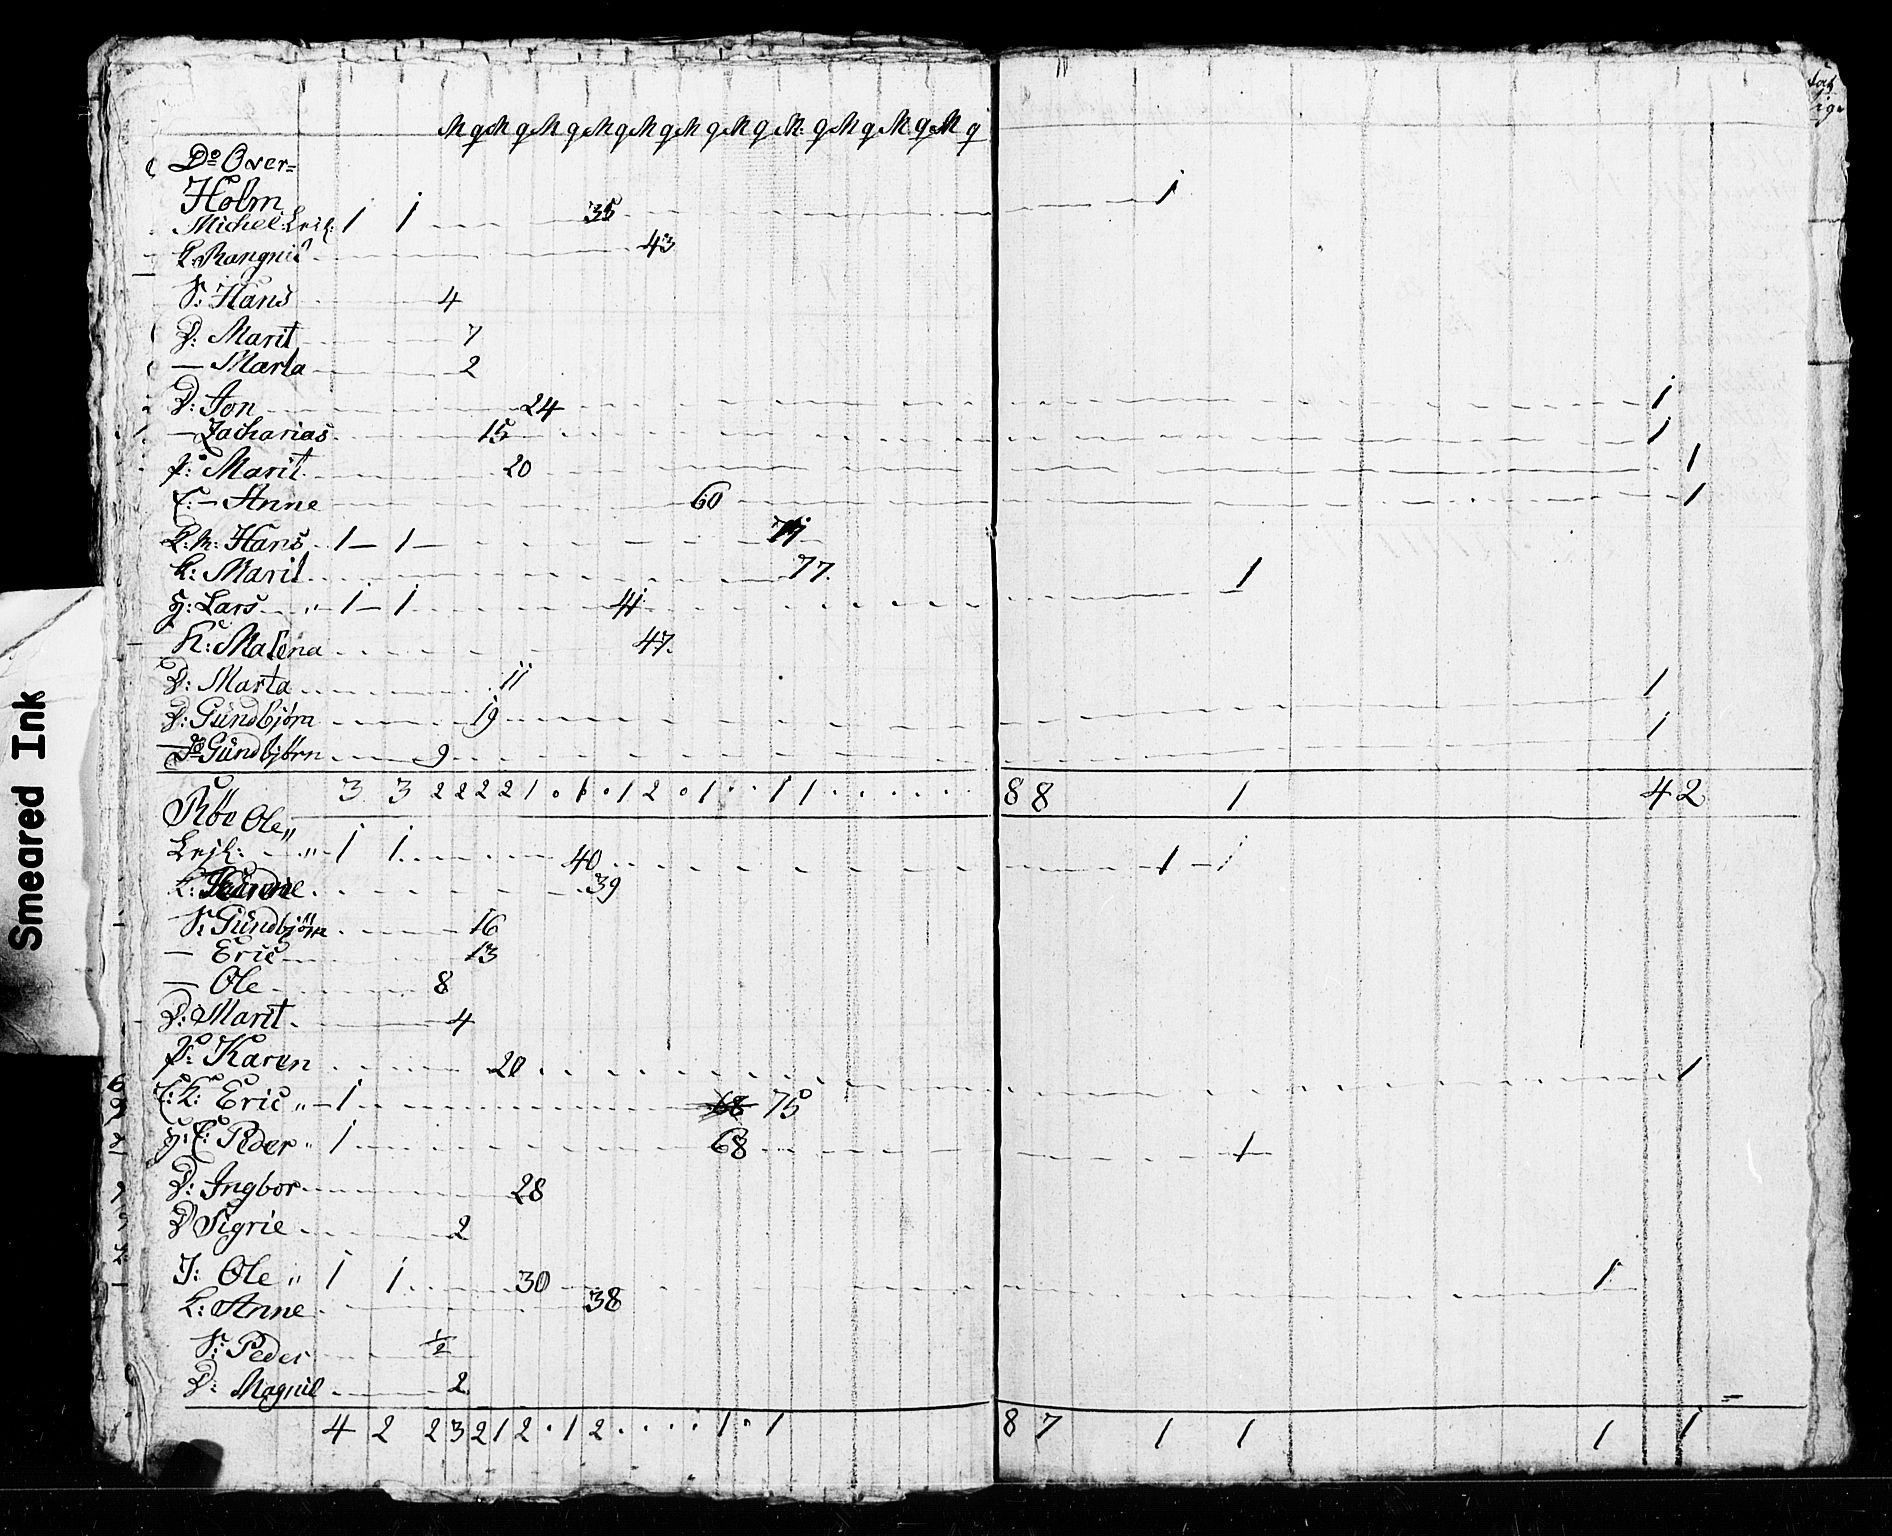 M q M q M q M q M q M q M q M: q M q M q M q
Do Over=
Holm
Michel Leil: 1 1 35 1
K: Rangnil 43
S: Hans 4
D: Marit 7
— Marta 2
D: Jon 24 1
— Zacharias 15 1
P: Marit 20 1
E: — Anne 60 1
K: M: Hans 1 — 1 —
K: Marit 77. 1
H: Lars „ 1 — 1 41
K: Malena 47.
D: Marta 11 1
D: Gundbjörn 19 1
Do Gundbjörn 9
3 3 2 2 2 2 1 . 1 . 1 2 . 1 . . 1 1 . . . . . . 8 8 1 4 2
Röe Ole„
Lejl: „ 1 1 40 1 — 1
K: 39
S: Gundbjörn 16
— Eric 13
— Ole 8
D: Marit 4
P: Karen 20 1
E: K: Eric „ — 1 68 75
H: E: Peder „ 1 68 1
D: Ingbor 28
D Sigrie 2
I: Ole „ 1 1 30 1
K: Anne 38
S: Peder 1/2
D: Magnil 2
4 2 2 3 2 1 2 . 1 2 . . . . . 1 . 1 8 7 1 1 1 1
Smeared Ink